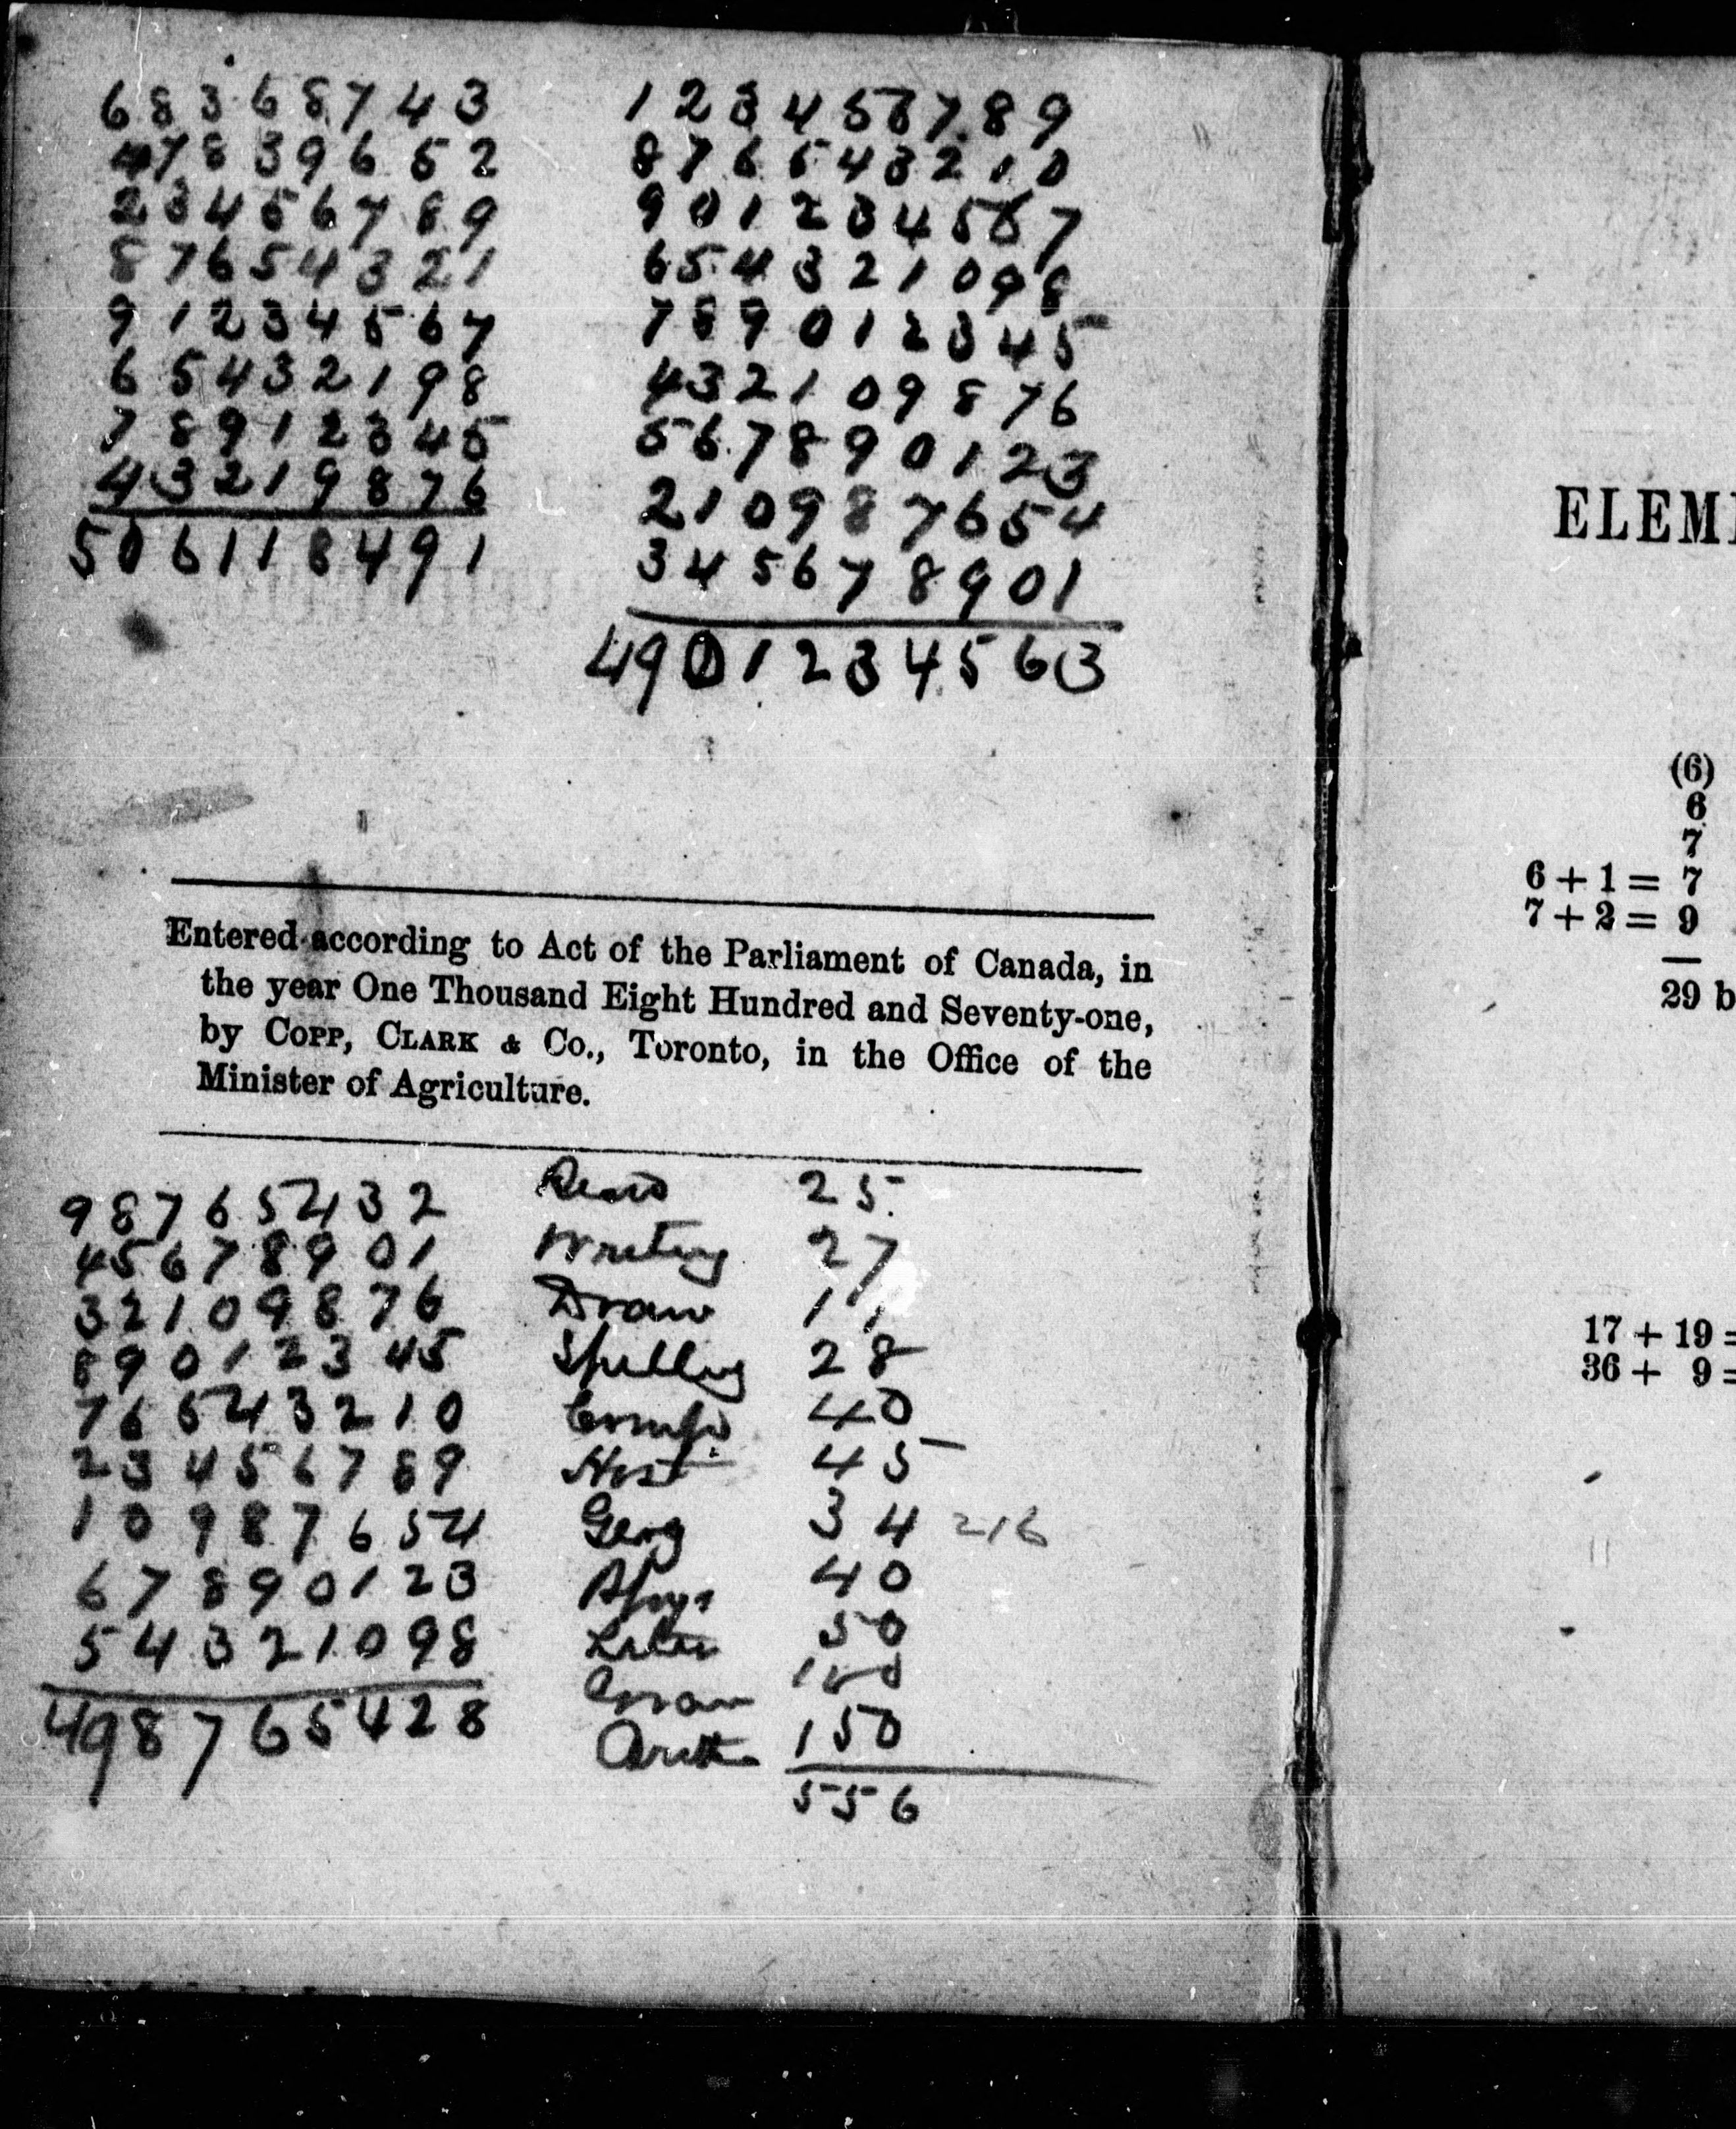 68368743
47839652
23456789
87654321
91234567
65432198
78912345
43219876
506118491
123456789
876543210
901234567
654321098
789012345
432109876
567890123
210987654
345678901
4901234563
Entered according to Act of the Parliament of Canada, in
the year One Thousand Eight Hundred and Seventy-one,
by COPP, CLARK & Co., Toronto, in the Office of the
Minister of Agriculture.
98765432
45678901
32109876
89012345
76543210
23456789
10987654
67890123
54321098
498765428
25
Writing 27
Draw
Spelling 28
40
Hist 45
Geog 34 216
40
50
Arith 150
556
ELEM
(6)
6
7
6 + 1 = 7
7 + 2 = 9
29 b
17 + 19 =
36 + 9 =